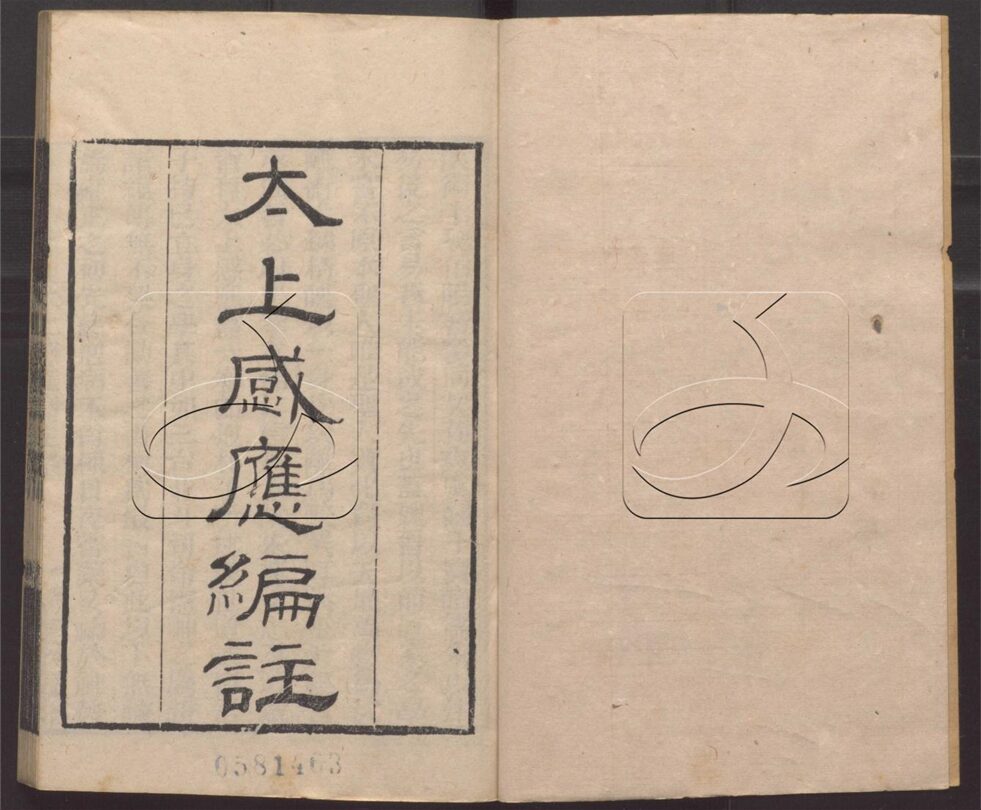 太上感應編註
0581463